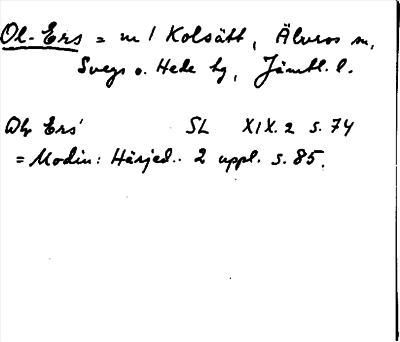 Ol-Ers = m / Kolsätt, Älvros sn,
Svegs o. Hede hg, Jämtl. l.
Ol Ers' SL XIX.2 s. 74
= Modin: Härjed.. 2 uppl. s. 85.